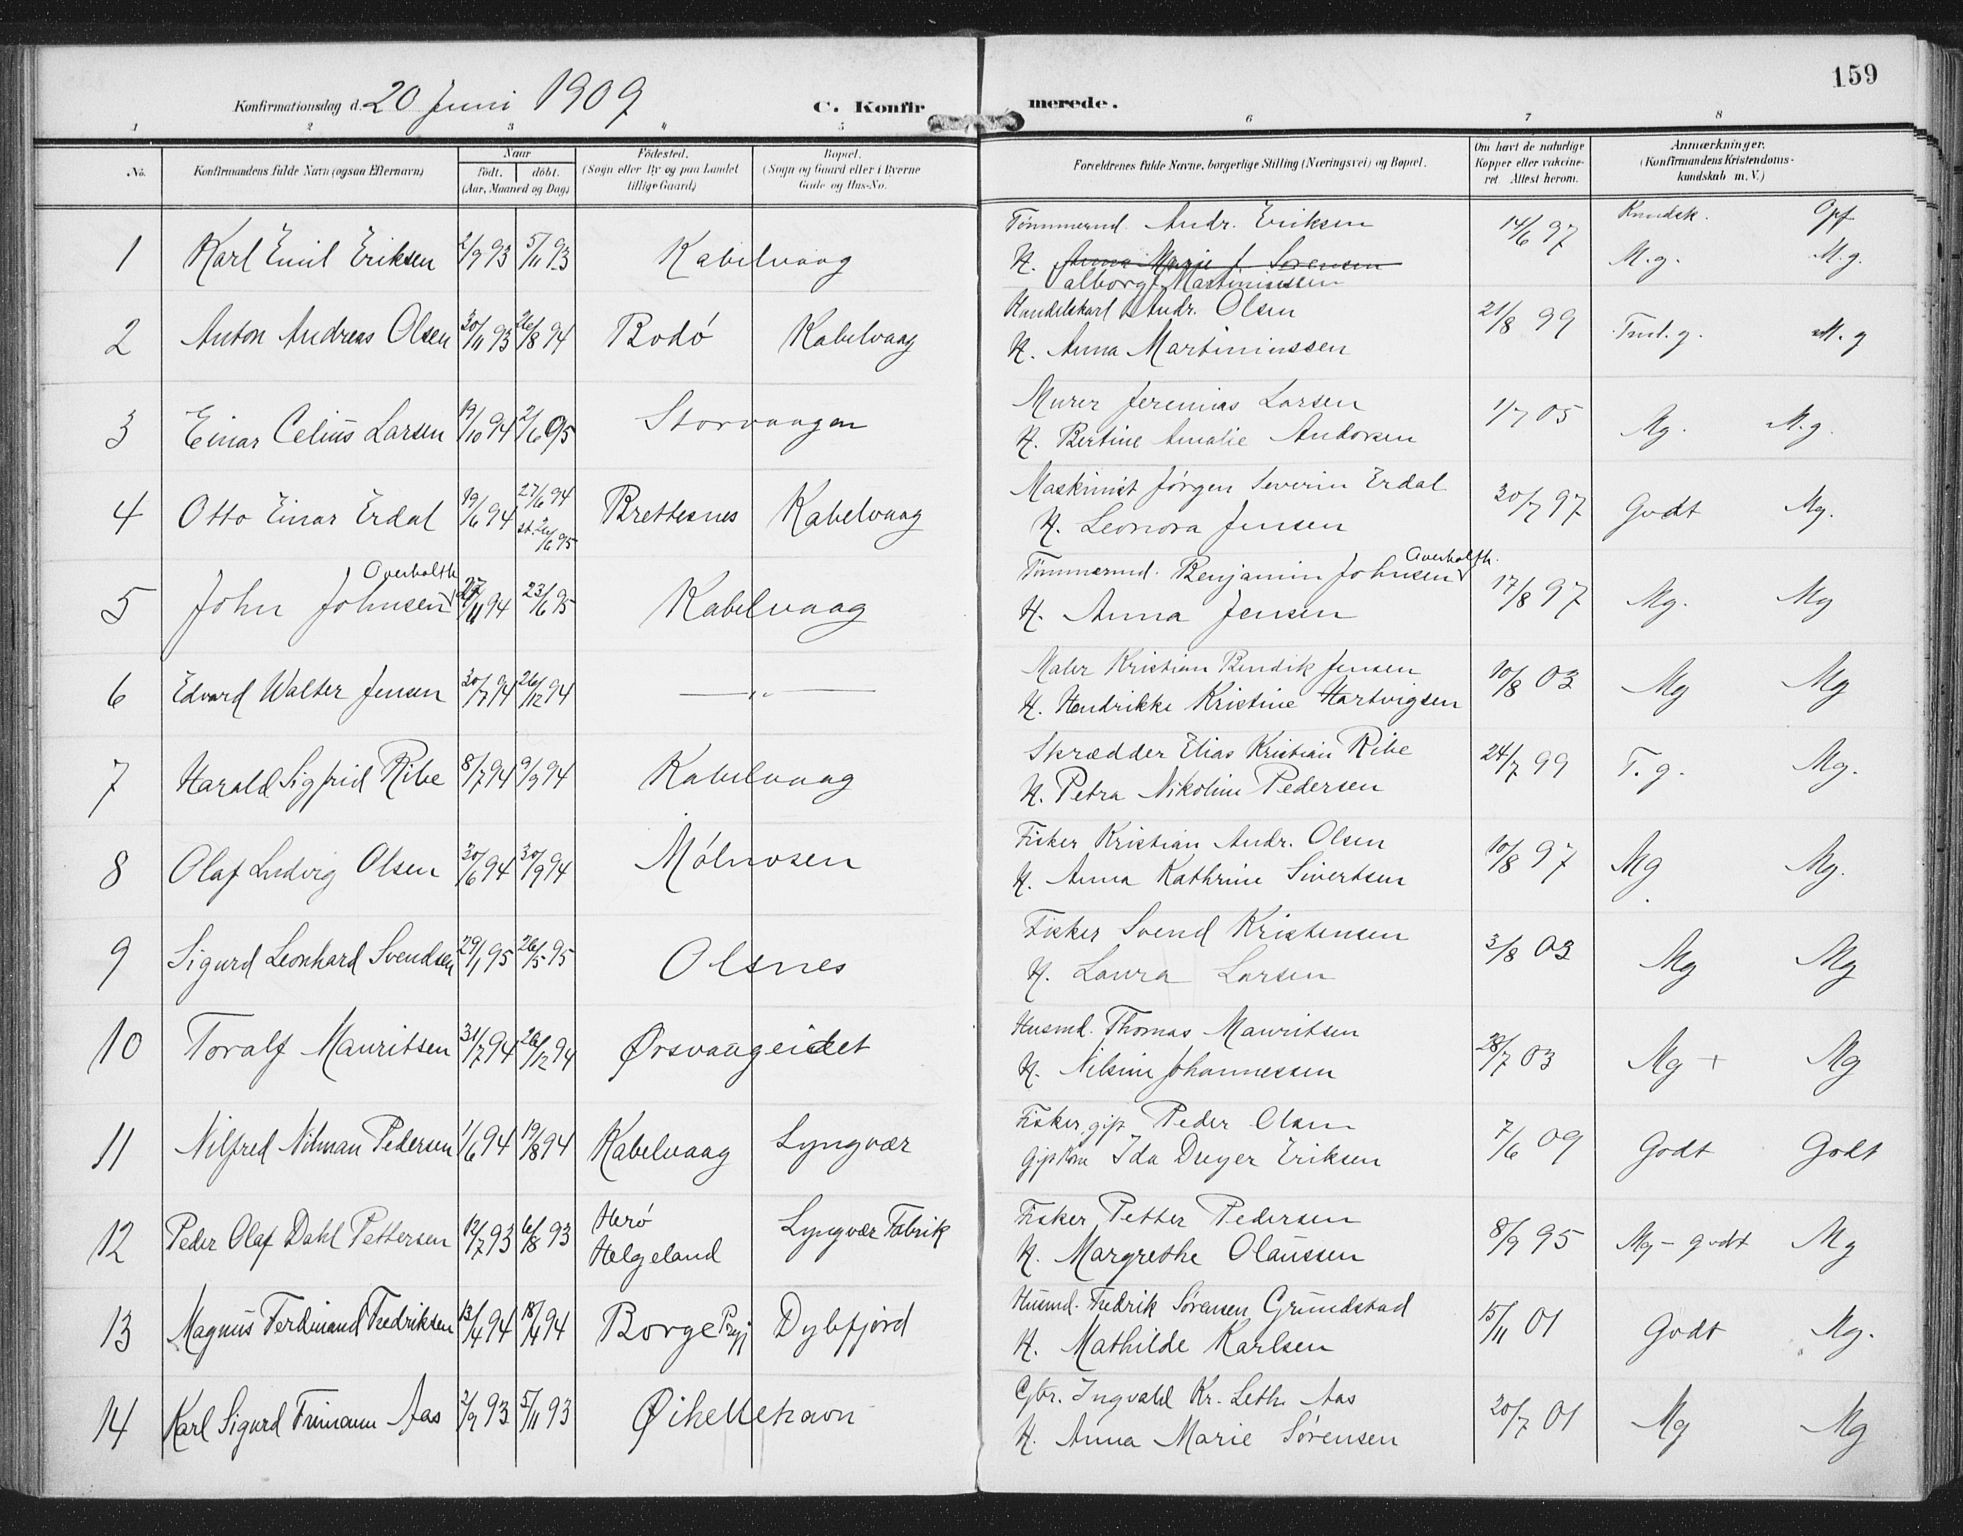 159
Konfirmationsdag d. 20 Juni 1909 C. Konfirmerede.
1 2 3 4 5 6 7 8
No. Konfirmandens fulde Navn (ogsaa Efternavn) Naar födt. döbt. (Aar, Maaned og Dag) Födested. (Sogn eller By og paa Landet tillige Gaard) Bopæl. (Sogn og Gaard eller i Byerne Gade og Hus-No. Forældrenes fulde Navne, borgerlige Stilling (Næringsvei) og Bopæl. Om havt de naturlige Kopper eller vaccineret. Attest herom. Anmærkninger. (Konfirmandens Kristendomskundskab m. V.)
Kundsk. Opf
1 Karl Emil Eriksen 2/9 93 5/11 93 Kabelvaag Tømmermd. Andr. Eriksen 14/6 97 M.g. M.g.
H. Anna Marie J. Sørensen
Valborg Martinussen
2 Anton Andreas Olsen 30/11 93 26/8 94 Bodó Kabelvaag Handelskarl Andr. Olsen 21/8 99 Tml. g. M.g
H. Anna Martiniussen
3 Einar Celius Larsen 19/10 94 2/6 95 Storvaagen Murer Jeremias Larsen 1/7 05 Mg. M.g.
H. Bertine Amalie Andorsen
4 Otto Einar Erdal 19/6 94 27/6 94 st. 26/6 95 Brettesnes Kabelvaag Maskinist Jørgen Severin Erdal 30/7 97 Godt Mg.
H. Leonora Jensen
5 John Johnsen Overholth 27/11 94 23/6 95 Kabelvaag Tømmermd. Benjamin Johnsen Overholth. 17/8 97 Mg. Mg
H. Anna Jensen
6 Edvard Walter Jensen 30/7 94 26/12 94 — „ — Maler Kristian Bendik Jensen 10/8 03 Mg Mg
H. Hendrikke Kristine Hartvigsen
7 Harald Sigfrid Ribe 8/7 94 9/9 94 Kabelvaag Skrædder Elias Kristian Ribe 24/7 99 T. g. Mg.
H. Petra Nikoline Pedersen
8 Olaf Ludvig Olsen 30/6 94 30/9 94 Mólnosen Fisker Kristian Andr. Olsen 10/8 97 Mg Mg.
H. Anna Kathrine Sivertsen
9 Sigurd Leonhard Svendsen 29/1 95 26/5 95 Olsnes Fisker Svend Kristensen 3/8 03 Mg Mg
H. Laura Larsen
10 Toralf Mauritsen 31/7 94 26/12 94 Ørsvaageidet Husmd. Thomas Mauritsen 28/7 03 Mg + Mg
H. Nilsine Johannessen
11 Nilfred Nilman Pedersen 1/6 94 19/8 94 Kabelvaag Lyngvær Fisker, gip Peder Olsen 7/6 09 Godt Godt
Gip Kone Ida Dreyer Eriksen
12 Peder Olaf Dahl Pettersen 12/7 93 6/8 93 Heró Helgeland Lyngvær Fabrik Fisker Petter Pedersen 8/9 95 Mg – godt Mg
H. Margrethe Olaussen
13 Magnus Ferdinand Fredriksen 13/4 94 18/4 94 Borge Dybfjord Husmd. Fredrik Sørensen Grundstad 15/11 01 Godt Mg.
H. Mathilde Karlsen
14 Karl Sigurd Trimann Aas 2/9 93 5/11 93 Øihellehavn Gbr. Ingvald Kr. Leth Aas 20/7 01 Mg Mg
H. Anna Marie Sørensen